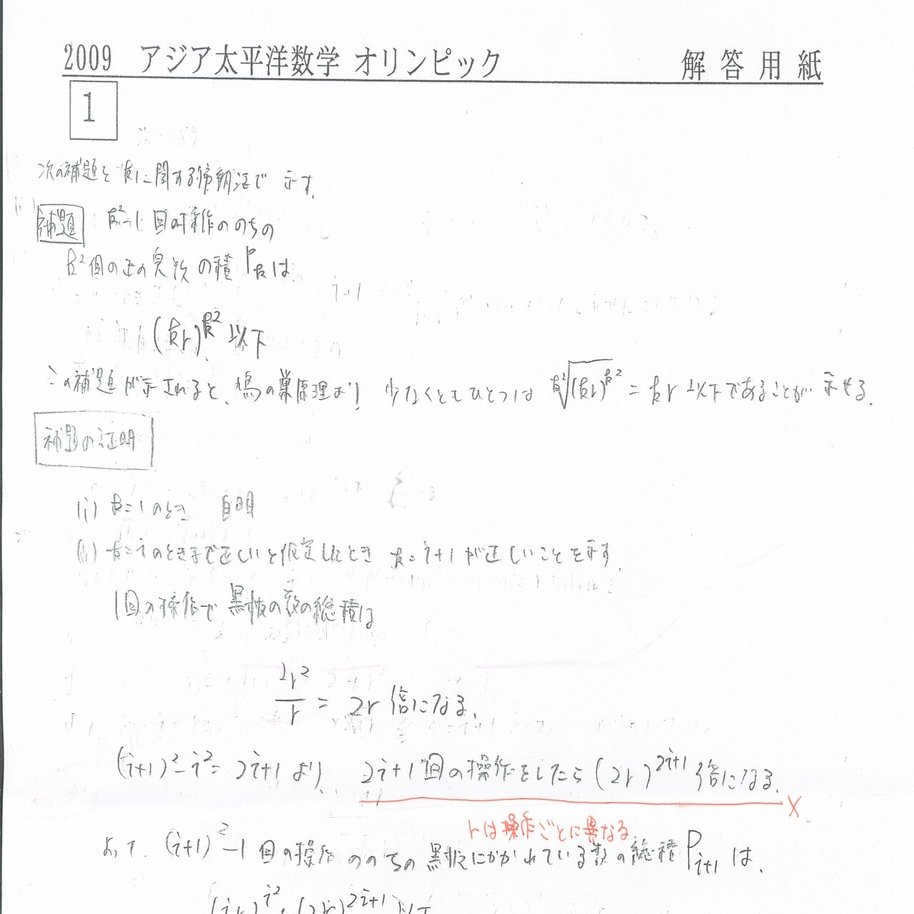 2009 アジア太平洋数学 オリンピック 解答用紙
1
次の補題を kに関する帰納法で 示す.
補題 k²-1 回の操作ののちの
k²個の正の実数の積 P_k は
(kr)^{k²} 以下
この補題が示されると、鳩の巣原理より 少なくともひとつは ^{k²}√(kr)^{k²} = kr 以下であることが 示せる.
補題の証明
(i) k=1のとき 自明
(ii) k=iのときまで正しいと仮定したとき k=i+1が正しいことを示す.
1回の操作で 黒板の数の総積は
2r²/r = 2r 倍になる.
(i+1)²-i²=2i+1 より, 2i+1回の操作をしたら (2r)^{2i+1} 倍になる. ×
rは操作ごとに異なる
よって, (i+1)²-1 回の操作ののちの 黒板にかかれている数の総積 P_{i+1} は,
(ir)^{i²}・(2r)^{2i+1} 以下